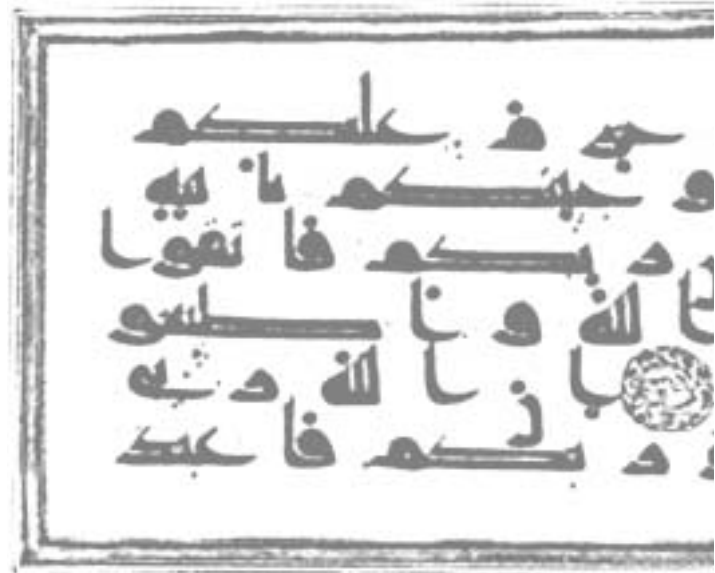 حرم عليكم
و جئتكم بايه
ر بكم فا تقوا
ا لله و ا طيعو
ا ن ا لله ر بي
و ر بكم فا عبد